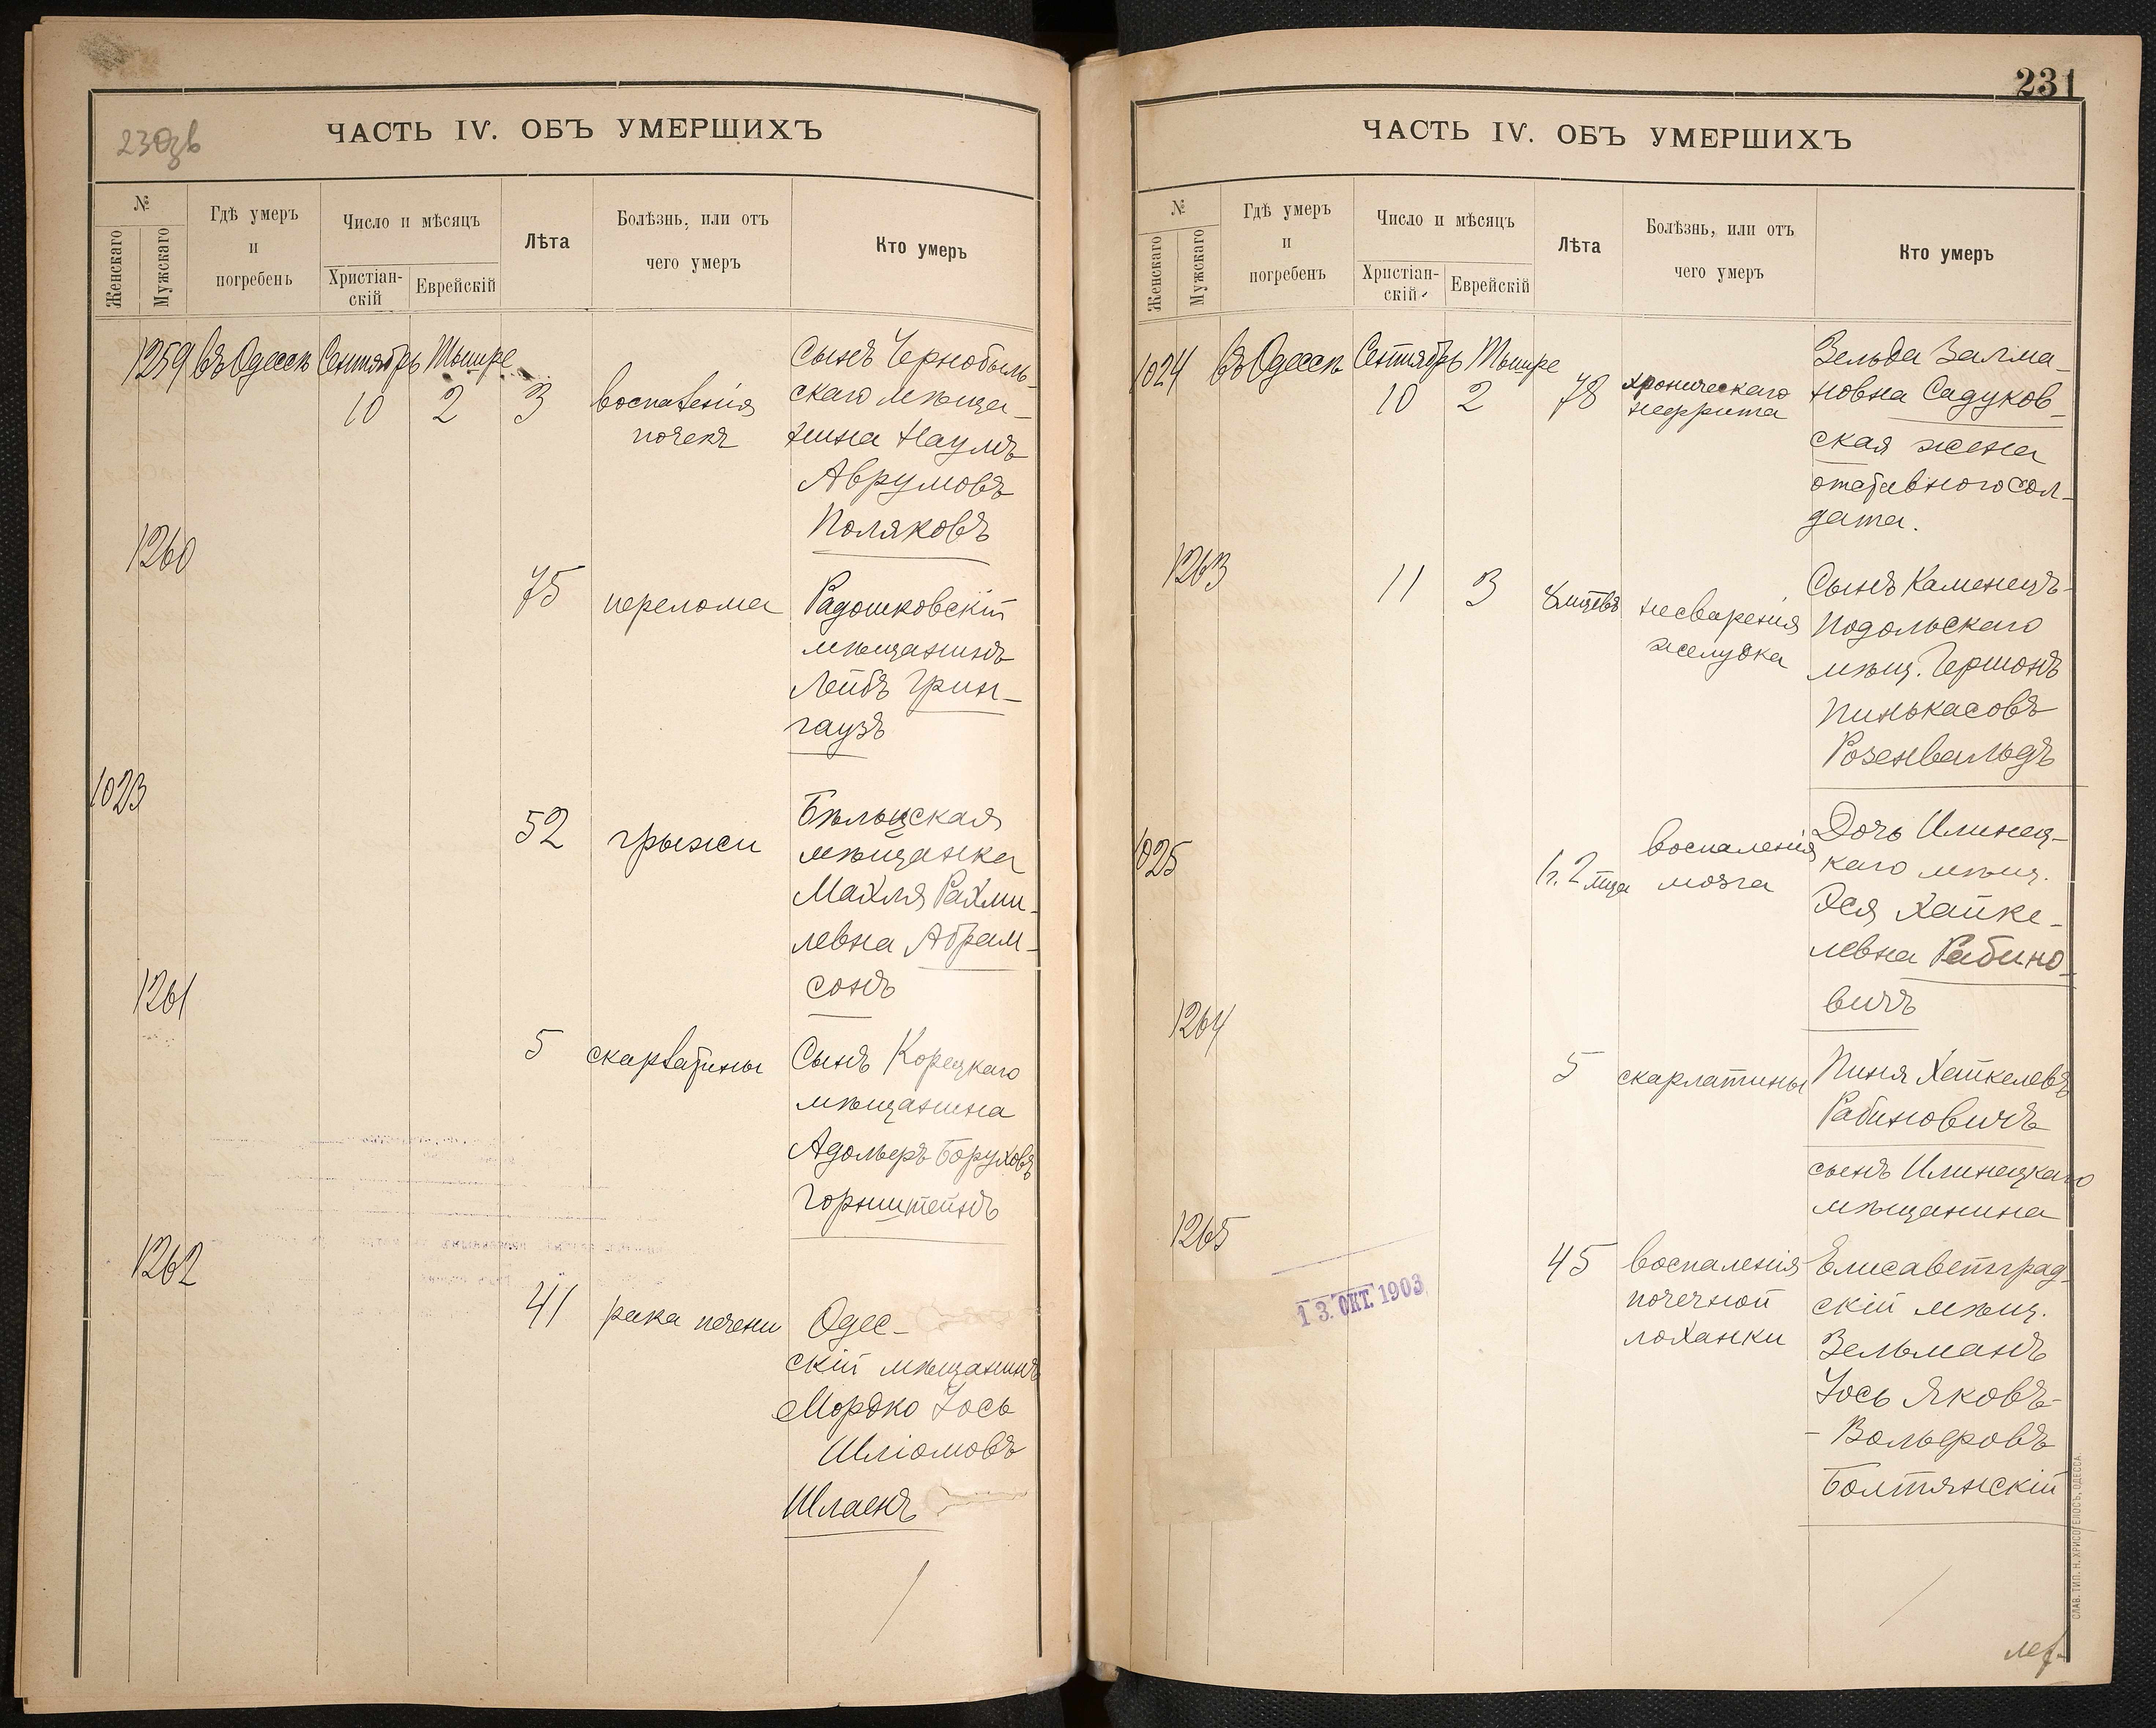 230зв
ЧАСТЬ IV. ОБЪ УМЕРШИХЪ
№
Женскаго
Мужскаго
Гдѣ умеръ
и
погребенъ
Число и мѣсяцъ
Христіан-
скій
Еврейскій
Лѣта
Болѣзнь, или отъ
чего умеръ
Кто умеръ
1259 въ Одессѣ Сентябрь Тышре
10 2 3 воспаленія
почекъ
Сынъ Чернобыль-
скаго мѣща-
нина Наумъ
Аврумовъ
Поляковъ
1260
75 перелома
Радошковскій
мѣщанинъ
Лейбъ Грин-
гаузъ
1023
52 грыжи
Бѣльцская
мѣщанка
Махля Рахми-
левна Абрам-
сонъ
1261
5 скарлатины
Сынъ Корецкаго
мѣщанина
Адольфъ Боруховъ
Горнштейнъ
1262
41 рака печени
Одес-
скій мѣщанинъ
Мордко Іось
Шліомовъ
Шлаенъ
231
ЧАСТЬ IV. ОБЪ УМЕРШИХЪ
№
Женскаго
Мужскаго
Гдѣ умеръ
и
погребенъ
Число и мѣсяцъ
Христіан-
скій
Еврейскій
Лѣта
Болѣзнь, или отъ
чего умеръ
Кто умеръ
1024 въ Одессѣ Сентябрь Тышре
10 2 78 хроническаго
нефрита
Зельда Залма-
новна Садуков-
ская жена
отставного сол-
дата.
1263
11 3 8 мцевъ несваренія
желудка
Сынъ Каменецъ-
Подольскаго
мѣщ. Гершонъ
Пинькасовъ
Розенвальдъ
1025
1 г. 2 мца воспаленія
мозга
Дочь Илинец-
каго мѣщ.
Хая Хайке-
левна Рабино-
вичъ
1264
5 скарлатины
Пиня Хайкелевъ
Рабиновичъ
сынъ Илинецкаго
мѣщанина
1265
45 воспаленія
почечной
лоханки
Елисаветград-
скій мѣщ.
Зельманъ
Іось Яковъ-
-Вольфовъ
Болтянскій
13. ОКТ. 1903
СЛАВ. ТИП. Н. ХРИСОГЕЛОСЪ, ОДЕССА.